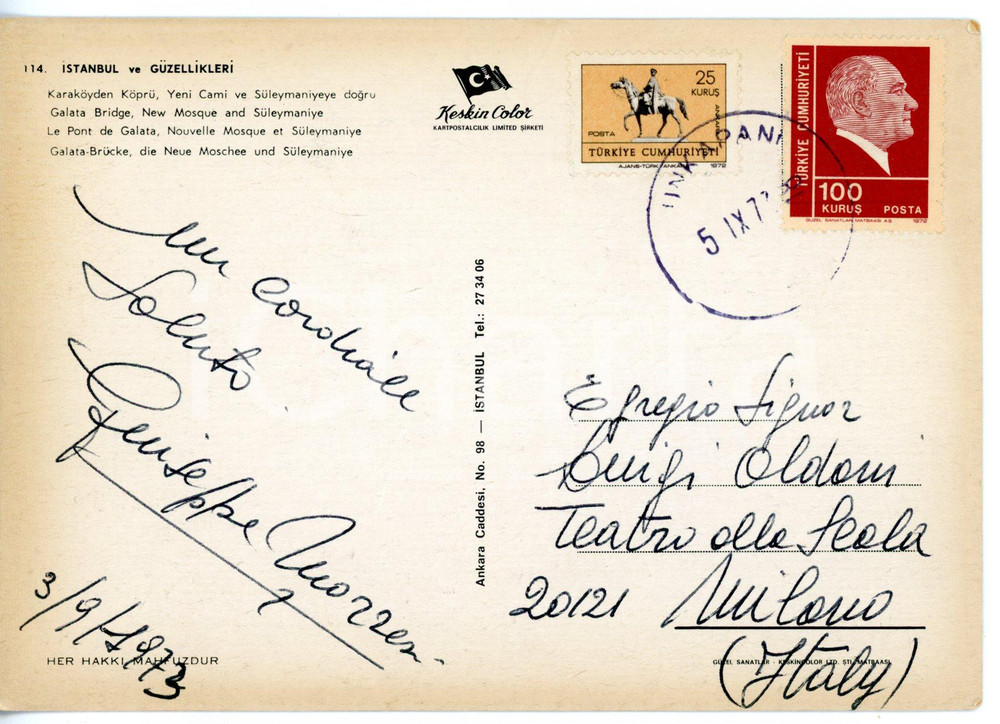 114. İSTANBUL ve GÜZELLİKLERİ
Karaköyden Köprü, Yeni Cami ve Süleymaniyeye doğru
Galata Bridge, New Mosque and Süleymaniye
Le Pont de Galata, Nouvelle Mosque et Süleymaniye
Galata-Brücke, die Neue Moschee und Süleymaniye
Keskin Color
KARTPOSTALCILIK LİMİTED ŞİRKETİ
25
KURUŞ
POSTA
ANKARA
TÜRKİYE CUMHURİYETİ
AJANS-TÜRK/ANKARA 1972
TÜRKİYE CUMHURİYETİ
100
KURUŞ POSTA
GÜZEL SANATLAR MATBAASI A.Ş. 1972
UNKAPANI
5 IX 73
Un cordiale
Saluto
Giuseppe
3/9/1973
HER HAKKI MAHFUZDUR
Ankara Caddesi, No. 98 — İSTANBUL Tel.: 27 34 06
Egregio Signor
Luigi Oldani
Teatro alla Scala
20121 Milano
(Italy)
GÜZEL SANATLAR - KESKİNCOLOR LTD. ŞTİ. MATBAASI